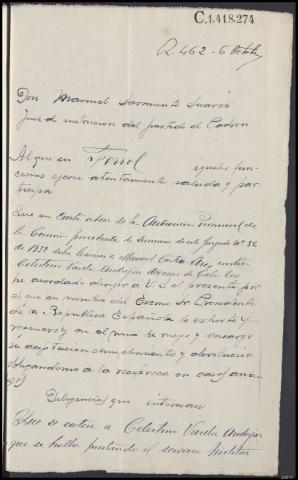 C.1.418.274
R. 462 - 6 Octubre
Don Manuel Sarmiento Suarez
juez de instrucion del partido de Padron
Al que en Ferrol iguales fun-
ciones ejerce atentamente saluda y par-
ticipa
Que en carta orden de la Audiencia Provincial de
la Coruña procedente de sumario de este Juzgado Nº 86
de 1932 sobre lesiones a Manuel Castro Rey, contra
Celestino Varela Andujar vecino de
he acordado dirijir a V.S. el presente por
el que en nombre del Excmo Sr Presidente
de la Republica Española le exhorto y
requiero y en el mio le ruego y encargo
su aceptacion cumplimiento y devolucion
obligandome a la reciproca en casos analo-
gos
Diligencias que interesan
Que se entere a Celestino Varela Andujar
que se halla prestando el servicio militar